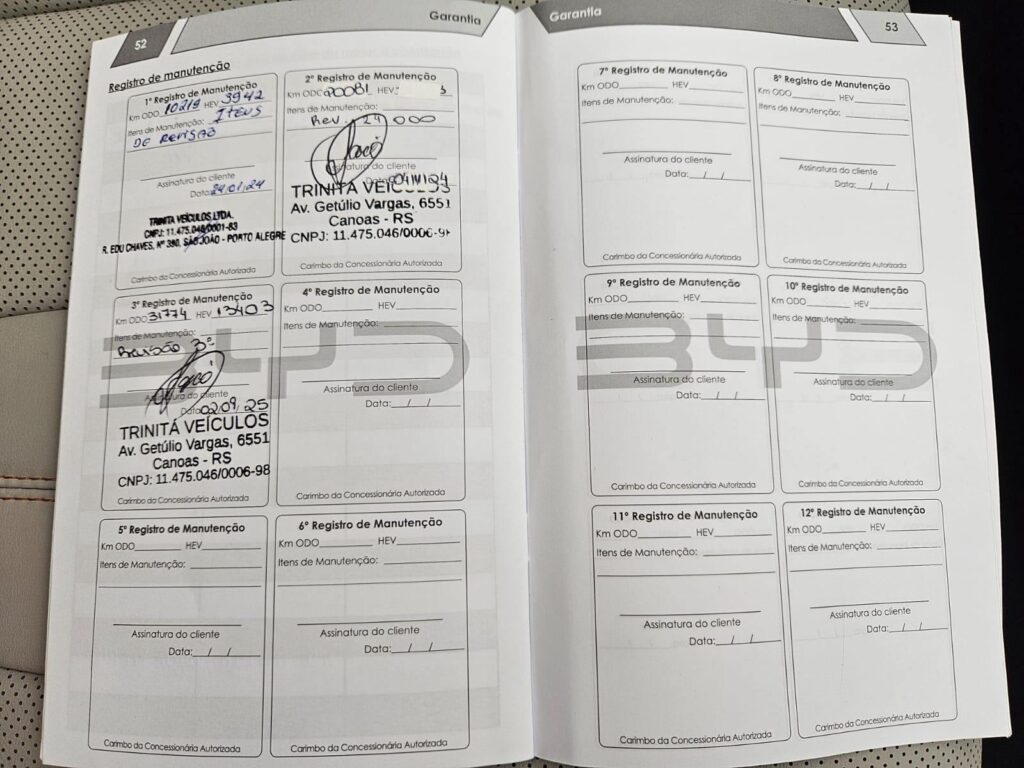 52
Garantia
Registro de manutenção
1º Registro de Manutenção
Km ODO 10219 HEV 3942
Itens de Manutenção: Itens
de Revisão
Assinatura do cliente
Data: 24/01/24
TRINITA VEÍCULOS LTDA.
CNPJ: 11.475.046/0001-83
R. EDU CHAVES, Nº 380, SÃO JOÃO - PORTO ALEGRE
Carimbo da Concessionária Autorizada
2º Registro de Manutenção
Km ODO 20081 HEV:
Itens de Manutenção:
Rev. 24 000
Assinatura do cliente
Data 04/11/24
TRINITÁ VEÍCULOS
Av. Getúlio Vargas, 6551
Canoas - RS
CNPJ: 11.475.046/0006-98
Carimbo da Concessionária Autorizada
3º Registro de Manutenção
Km ODO 31774 HEV 13403
Itens de Manutenção:
Revisão 3º
Assinatura do cliente
Data 02/09/25
TRINITÁ VEÍCULOS
Av. Getúlio Vargas, 6551
Canoas - RS
CNPJ: 11.475.046/0006-98
Carimbo da Concessionária Autorizada
4º Registro de Manutenção
Km ODO HEV
Itens de Manutenção:
Assinatura do cliente
Data: / /
Carimbo da Concessionária Autorizada
5º Registro de Manutenção
Km ODO HEV
Itens de Manutenção:
Assinatura do cliente
Data: / /
Carimbo da Concessionária Autorizada
6º Registro de Manutenção
Km ODO HEV
Itens de Manutenção:
Assinatura do cliente
Data: / /
Carimbo da Concessionária Autorizada
BYD
Garantia
53
7º Registro de Manutenção
Km ODO HEV
Itens de Manutenção:
Assinatura do cliente
Data: / /
Carimbo da Concessionária Autorizada
8º Registro de Manutenção
Km ODO HEV
Itens de Manutenção:
Assinatura do cliente
Data: / /
Carimbo da Concessionária Autorizada
9º Registro de Manutenção
Km ODO HEV
Itens de Manutenção:
Assinatura do cliente
Data: / /
Carimbo da Concessionária Autorizada
10º Registro de Manutenção
Km ODO HEV
Itens de Manutenção:
Assinatura do cliente
Data: / /
Carimbo da Concessionária Autorizada
11º Registro de Manutenção
Km ODO HEV
Itens de Manutenção:
Assinatura do cliente
Data: / /
Carimbo da Concessionária Autorizada
12º Registro de Manutenção
Km ODO HEV
Itens de Manutenção:
Assinatura do cliente
Data: / /
Carimbo da Concessionária Autorizada
BYD